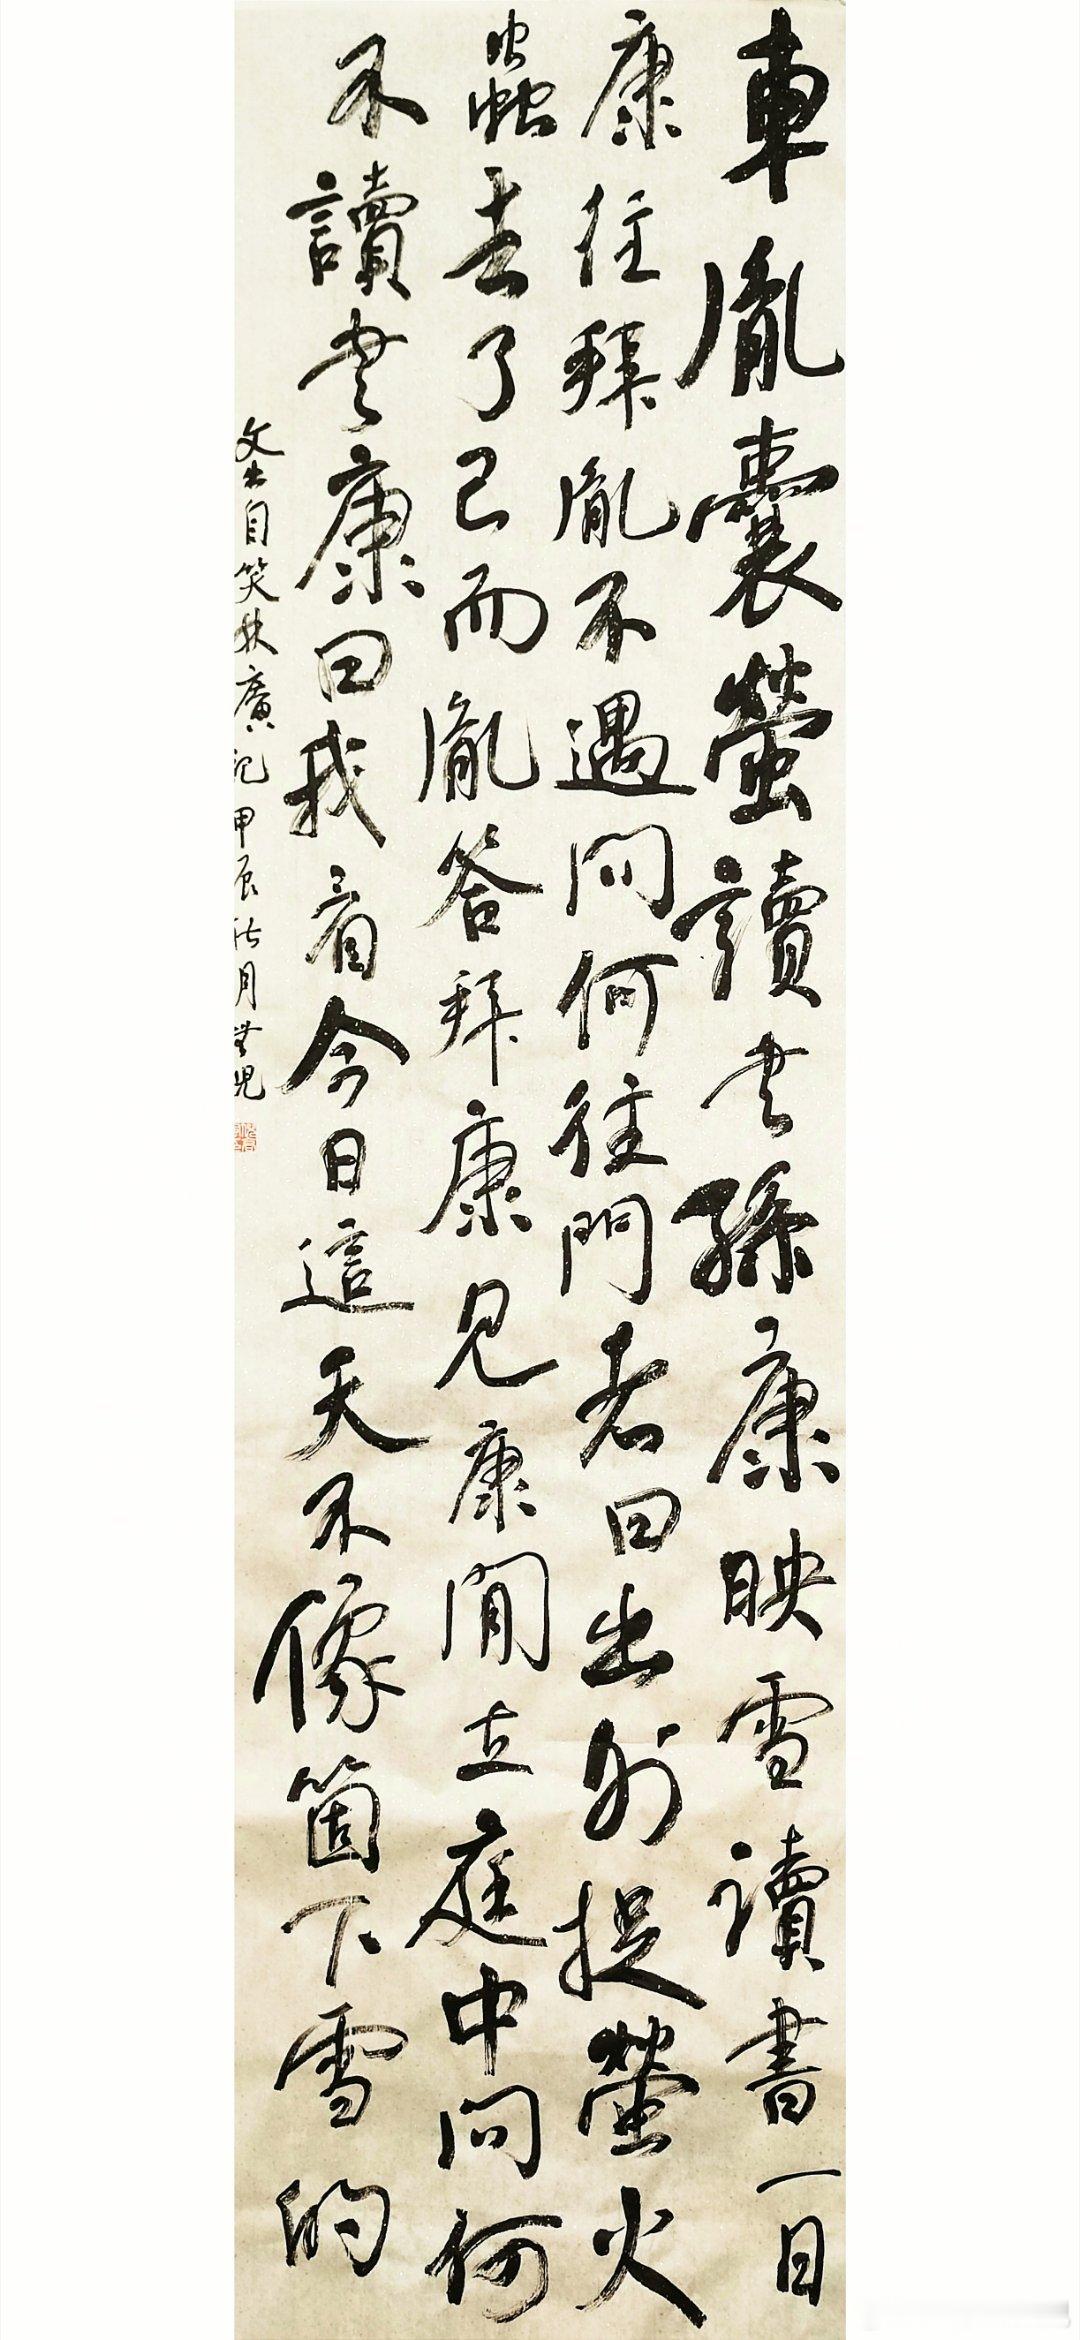 車胤囊螢讀书孫康映雪讀書一日
康往拜胤不遇問何往門者曰出外捉螢火
蟲去了已而胤答拜康見康閒立庭中問何
不讀书康曰我看今日這天不像箇下雪的
文出自笑林廣記甲辰 月